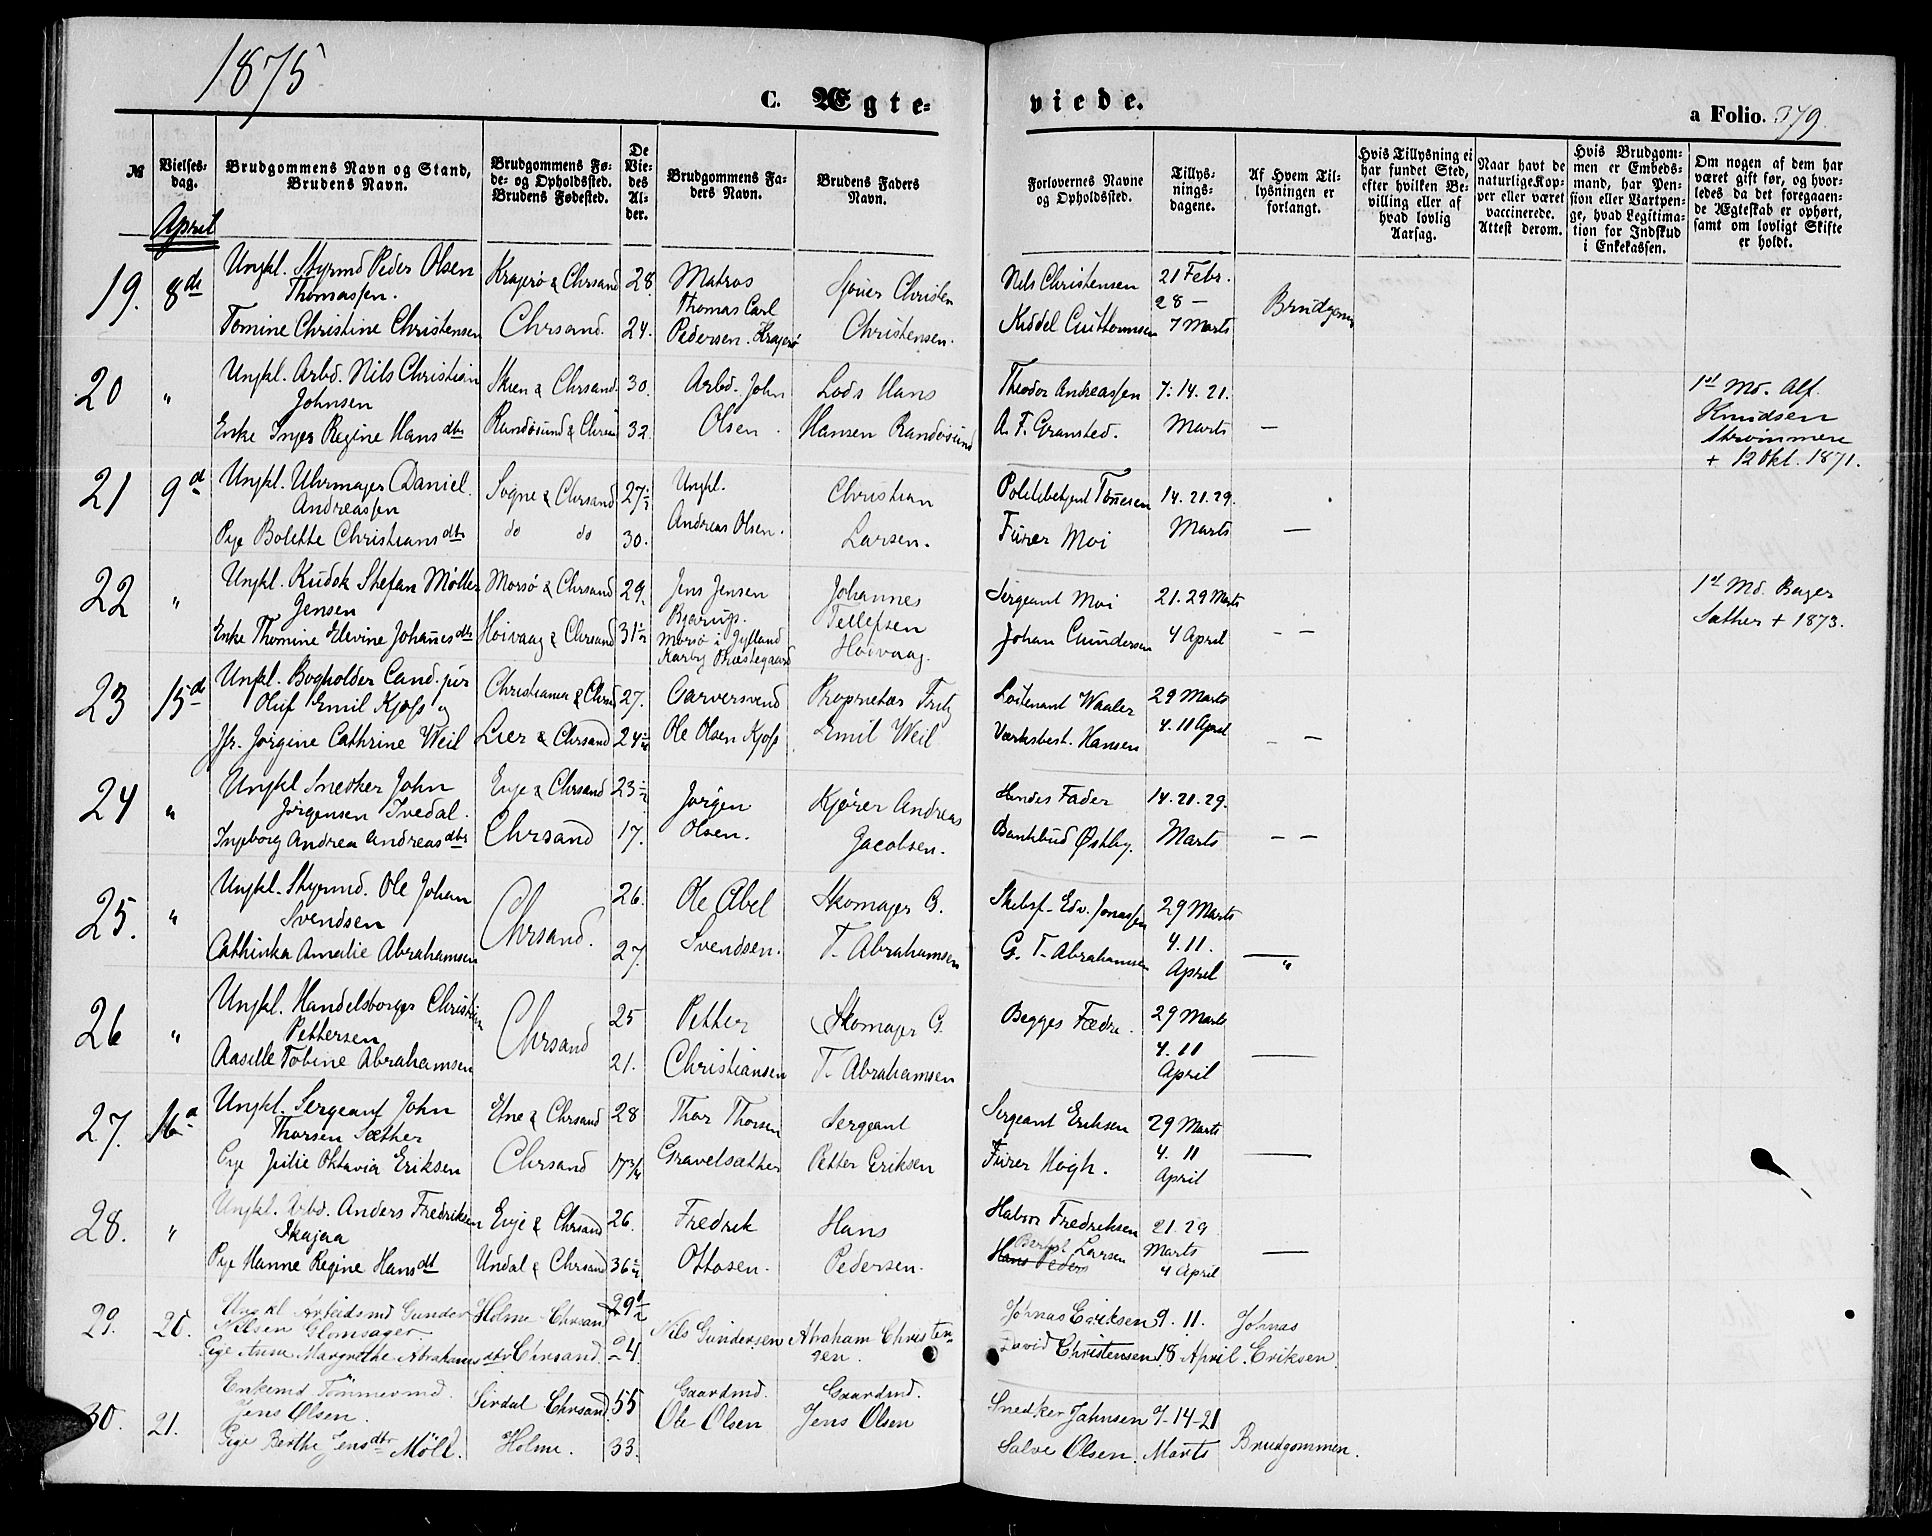 1875
C. Ægte=
viede.
a Folio. 379.
№
Vielses-
dag.
Brudgommens Navn og Stand,
Brudens Navn.
Brudgommens Fø-
de- og Opholdssted.
Brudens Fødested.
De
Vie-
des
Al-
der.
Brudgommens Fa-
ders Navn.
Brudens Faders
Navn.
Forlovernes Navne
og Opholdssted.
Tillys-
nings-
dagene.
Af Hvem Til-
lysningen er
forlangt.
Hvis Tillysning ei
har fundet Sted,
efter hvilken Be-
villing eller af
hvad lovlig
Aarsag.
Naar havt de
naturlige Kop-
per eller været
vaccinerede.
Attest derom.
Hvis Brudgom-
men er Embeds-
mand, har Pen-
sion eller Vartpen-
ge, hvad Legitima-
tion for Indskud
i Enkekassen.
Om nogen af dem har
været gift før, og hvor-
ledes da det foregaaen-
de Ægteskab er ophørt,
samt om lovligt Skifte
er holdt.
April
19. 8de Ungkl. Styrmd Peder Olsen Kragerø & Chrsand 28. Matros Christen Nils Christensen 21 Febr.
Thomassen. Thomas Carl 28 – Brudgom
Tomine Christine Christensen Chrsand. 24. Pedersen. Kragerø Christensen. Kiddel 7 Marts
20 " Ungkl. Arbd. Nils Christian Skien & Chrsand. 30. Arbd. John Lods Hans Theodor Andreassen 7. 14. 21. 1st Md. Alf
Johnsen Knudsen
Enke Inger Regine Hansdtr Randøsund & Chrsand 32. Olsen. Hansen Randøsund A. F. Gransted. Marts — Strømmere
+ 12 Okt. 1871.
21 9d Ungkl. Uhrmager Daniel Sogne & Chrsand 27½ Ungkl. Christian Politibetjent Tønnesen 14. 21. 29.
Andreassen
Pige Bolette Christiansdtr do do 30. Andreas Olsen. Larsen. Furer Moi Marts —
22 " Ungkl. Kudsk Stefan Møller Morsø & Chrsand 29. Jens Jensen Johannes Sergeant Moi 21. 29 Marts 1st Md. Bager
Jensen Bjørup. Tellefsen
Enke Thomine Elevine Johannesdtr Hoivaag & Chrsand 31½ Morsø i Jylland Hoivaag. Johan Gundersen 4 April – – Sæther + 1873.
Karby Præstegaard
23 15de Ungkl. Bogholder Cand. jur Christiania & Chrsand 27. Garversvend Proprietær Fritz Loitenant Waaler 29 Marts
Oluf Emil Kjoss og
Jfr. Jørgine Cathrine Weil Lier & Chrsand 24 Ole Olsen Kjoss Emil Weil Værksbest. Hansen 4. 11 April – –
24 " Ungkl Snedker John Evje & Chrsand 23½ Jørgen Kjører Andreas Hendes Fader 14. 21. 29.
Jørgensen Ivedal.
Ingborg Andrea Andreasdtr Chrsand 17. Olsen. Jacobsen. Bankbud Østby. Marts – –
25. " Ungkl. Styrmd. Ole Johan 26. Ole Abel Skomager G. Skibsf. Edv. Jonassen 29 Marts
Svendsen Chrsand. 4. 11.
Cathinka Amalie Abrahamsen 27. Svendsen. T. Abrahamsen G. T. Abrahamsen April — "
26 " Ungkl. Handelsborger Christian 25 Petter Skomager G. Begges Fædre. 29 Marts
Pettersen Chrsand 4. 11
Aaselle Tobine Abrahamsen 21. Christiansen T. Abrahamsen April —
27. 16d Ungkl. Sergeant John Etne & Chrsand 28 Thor Thorsen Sergeant Sergeant Eriksen 29 Marts
Thorsen Sæther 4. 11
Pige Julie Oktavia Eriksen Chrsand 17¾ Gravelsæther Petter Eriksen Furer Høgh. April —
28. " Ungkl. Arbd. Anders Fredriksen Evje & Chrsand 26. Fredrik Hans Halvor Fredriksen 21. 29
Skajaa Bernt Larsen Marts —
Pige Hanne Regine Hansdt Undal & Chrsand 36½ Ottosen. Pedersen. Hans Peders 4 April
29. 20. Ungkl Arbeidsmd Gunder Holme Chrsand 29½ Nils Gundersen Abraham Christen- Johnas Eriksen 9. 11. Johnas
Nilsen Glomsager. sen.
Pige Anne Margrethe Abrahamsdtr Chrsand 24. David Christensen 18 April. Eriksen.
30. 21. Enkemd Tømmermd. Sirdal Chrsand 55 Gaardmd. Gaardmd. Snedker Jahnsen 7-14-21
Jens Olsen. Ole Olsen Jens Olsen
Pige Berthe Jensdtr Møll. Holme. 33. Salve Olsen. Marts Brudgommen.